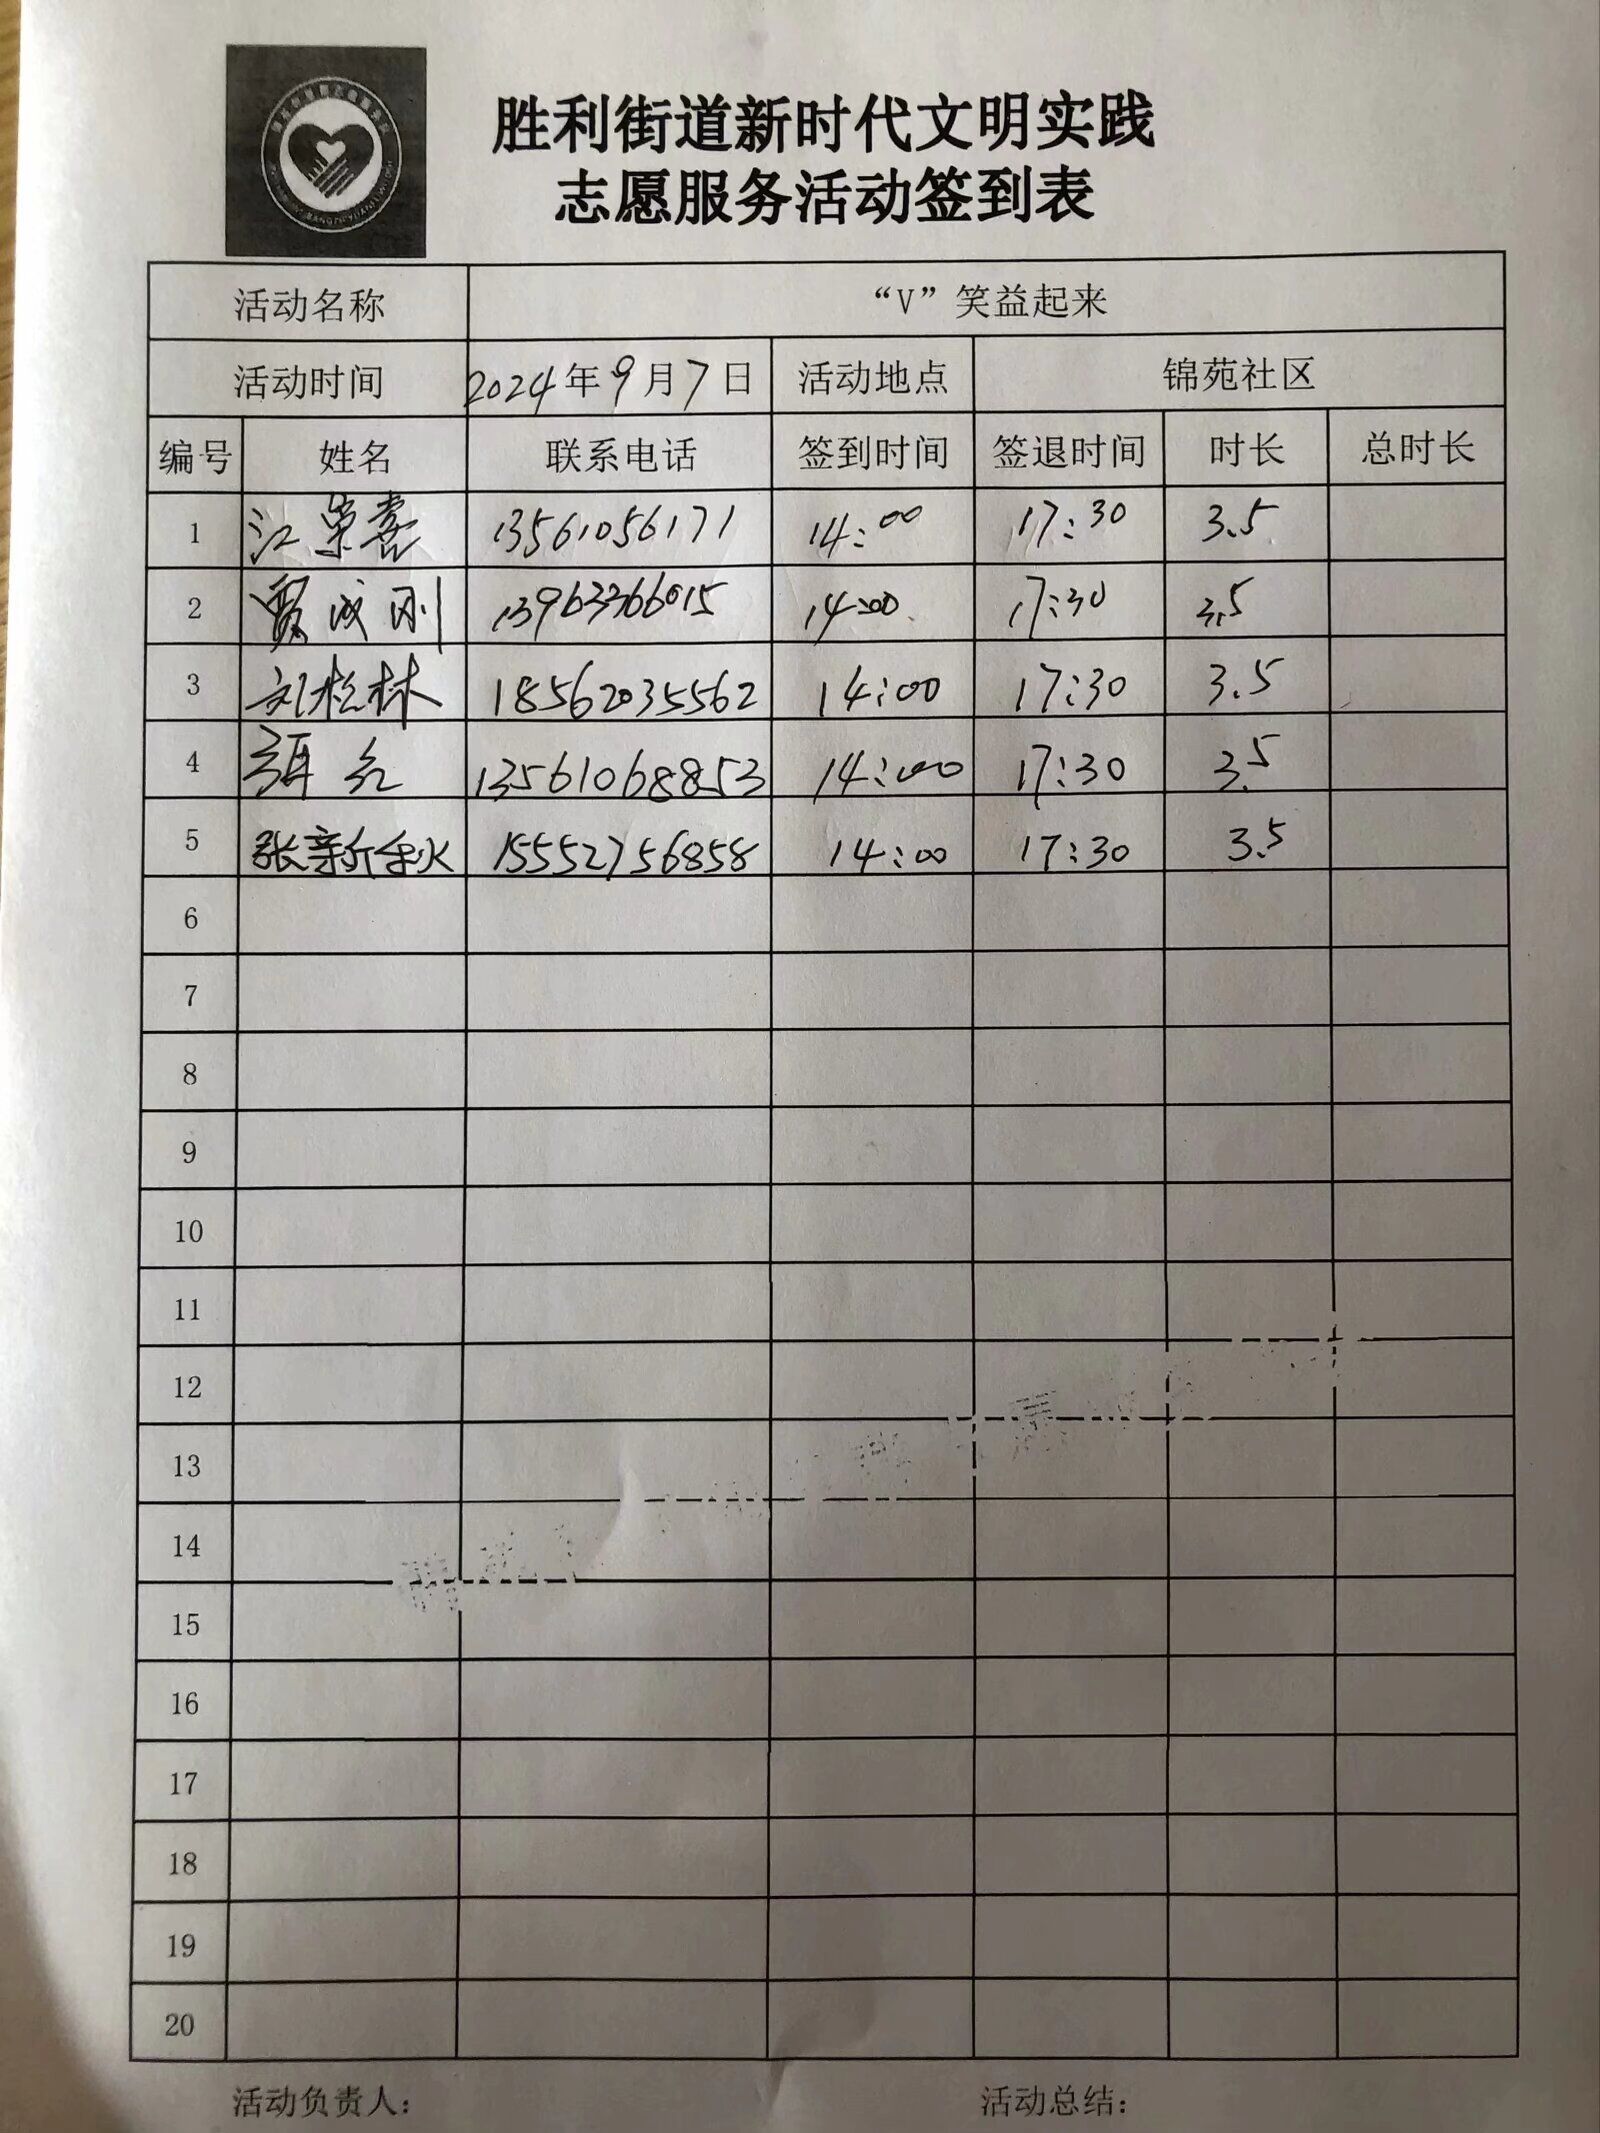 胜利街道新时代文明实践
志愿服务活动签到表
活动名称 “V”笑益起来
活动时间 2024年9月7日 活动地点 锦苑社区
编号 姓名 联系电话 签到时间 签退时间 时长 总时长
1 江荣喜 13561056171 14:00 17:30 3.5
2 贾成刚 14:00 17:30 3.5
3 刘松林 18562035562 14:00 17:30 3.5
4 13561068853 14:00 17:30 3.5
5 张新秋 15552756858 14:00 17:30 3.5
6
7
8
9
10
11
12
13
14
15
16
17
18
19
20
活动负责人: 活动总结: